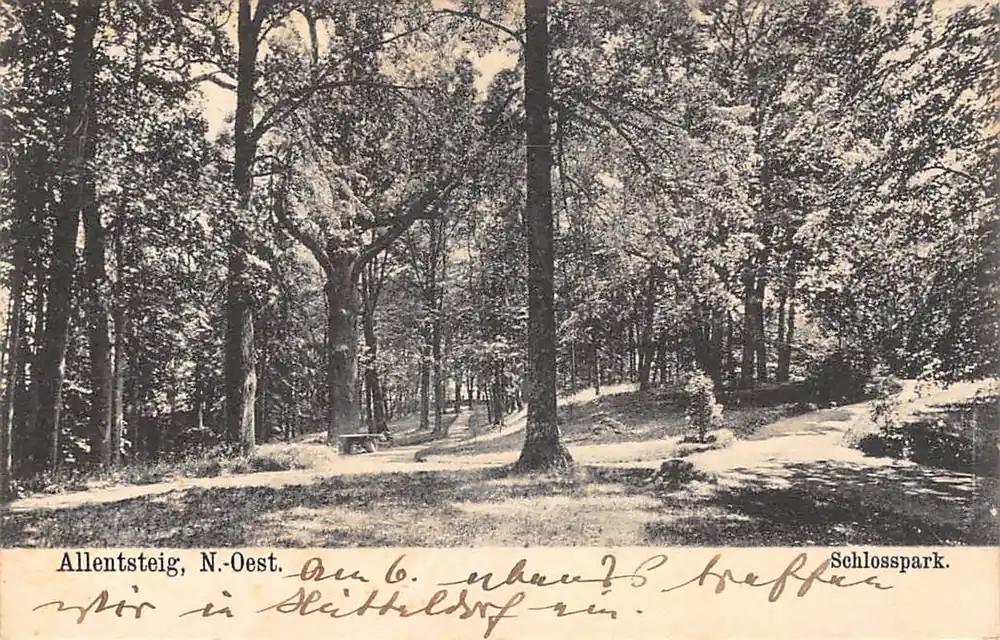 Allentsteig, N.-Oest.
Schlosspark.
Am 6. abends treffen
wir in Hütteldorf ein.